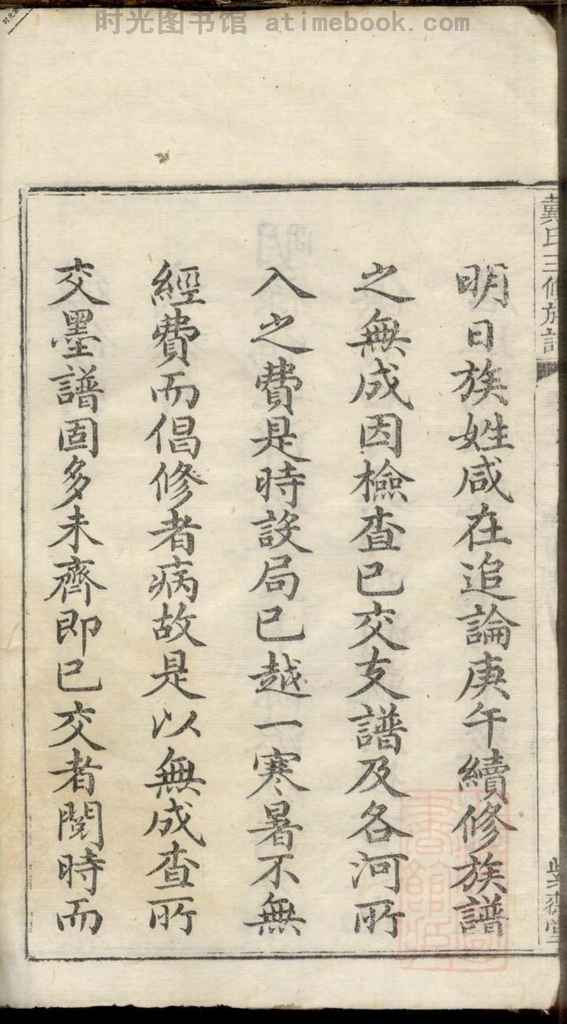 时光图书馆 atimebook.com
戴氏三修族譜
明日族姓咸在追論庚午續修族譜
之無成因檢查已交支譜及各河所
入之費是時設局已越一寒暑不無
經費而倡修者病故是以無成查所
交墨譜固多未齊即已交者閱時而